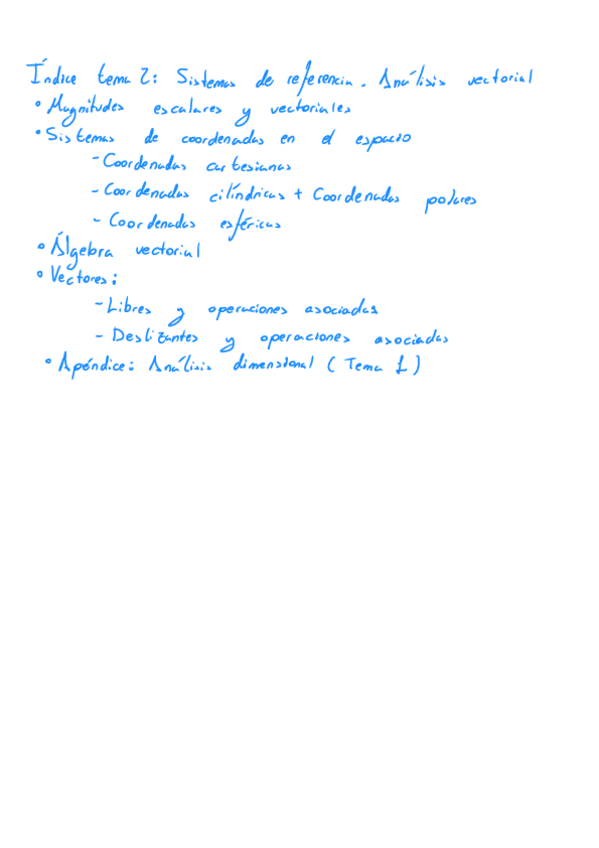 Índice tema 2: Sistemas de referencia. Análisis vectorial
• Magnitudes escalares y vectoriales
• Sistemas de coordenadas en el espacio
- Coordenadas cartesianas
- Coordenadas cilíndricas + Coordenadas polares
- Coordenadas esféricas
• Álgebra vectorial
• Vectores:
- Libres y operaciones asociadas
- Deslizantes y operaciones asociadas
• Apéndice: Análisis dimensional (Tema 1)